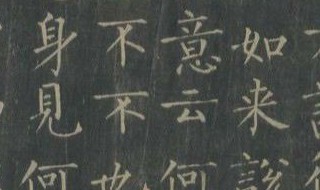 如来說
意云何
不不也
身見何